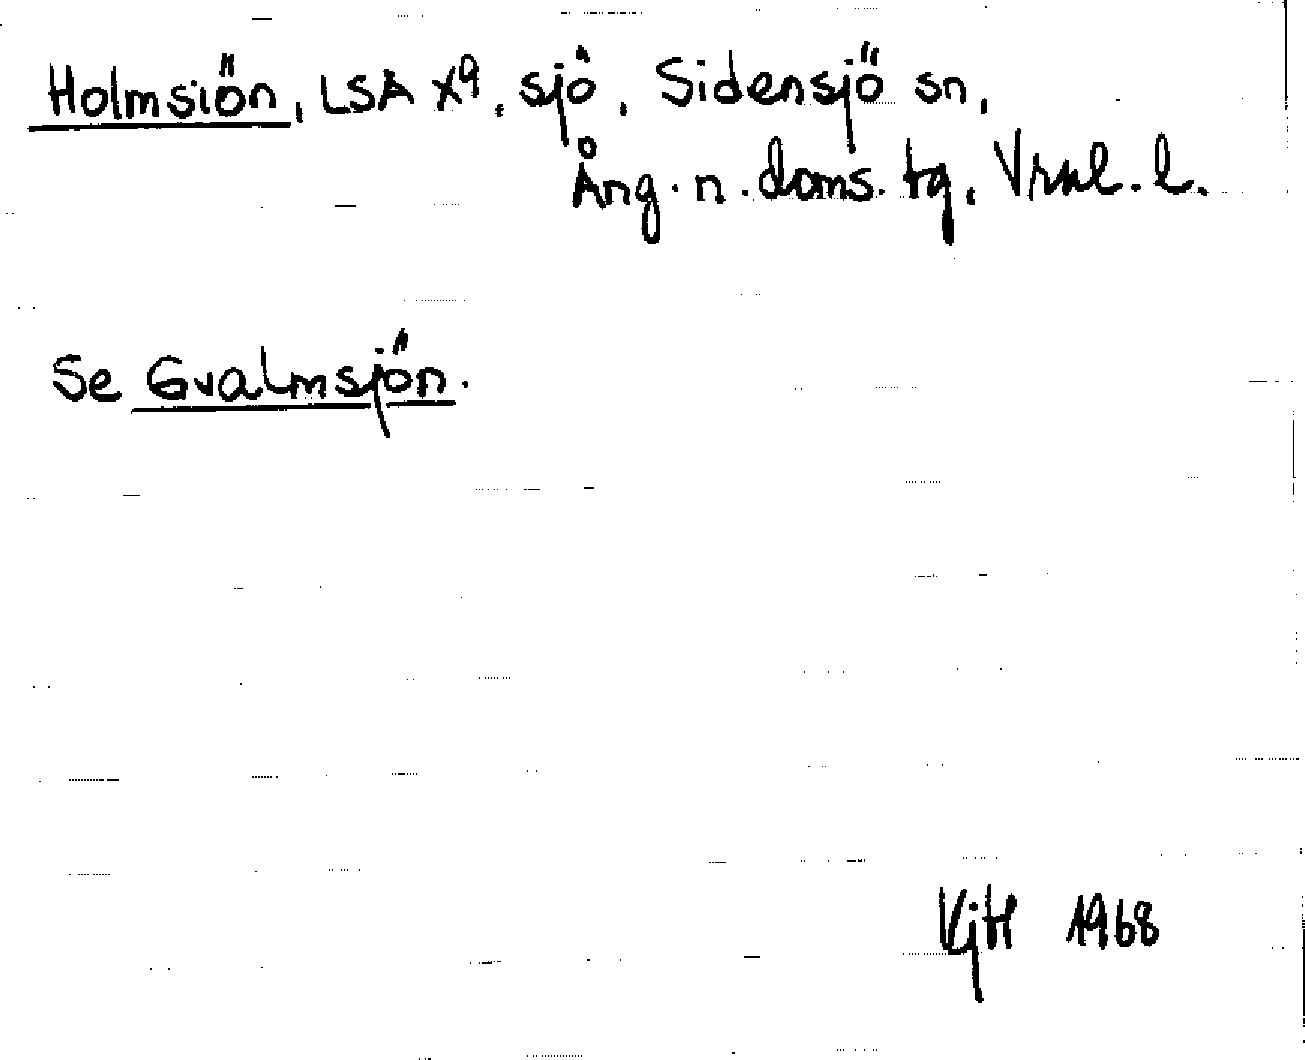 Holmsiön, LSA X9, sjö, Sidensjö sn,
Ång. n. doms. tg, Vrnl. l.
Se Gvalmsjön.
KjH 1968